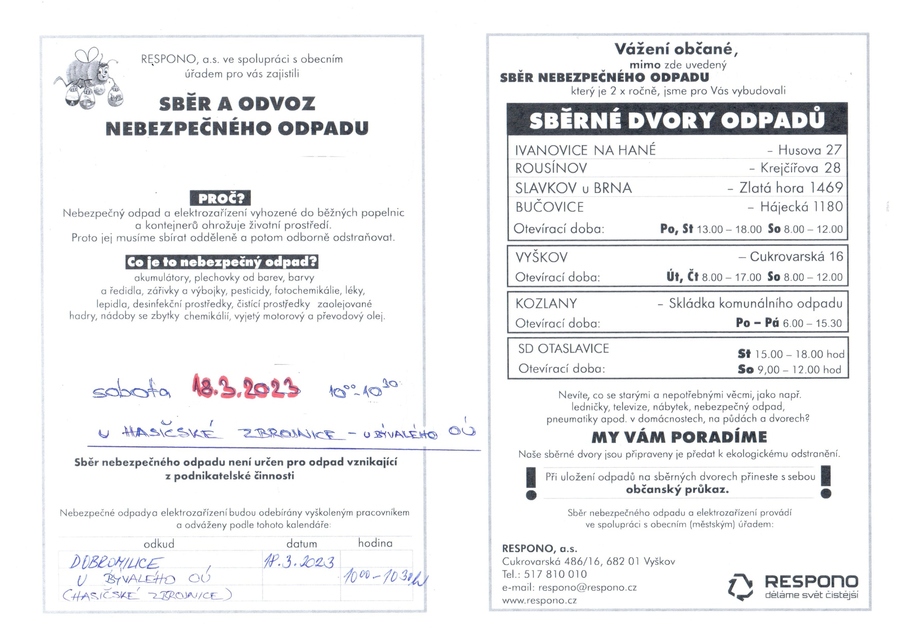 RESPONO, a.s. ve spolupráci s obecním
úřadem pro vás zajistili
SBĚR A ODVOZ
NEBEZPEČNÉHO ODPADU
PROČ?
Nebezpečný odpad a elektrozařízení vyhozené do běžných popelnic
a kontejnerů ohrožuje životní prostředí.
Proto jej musíme sbírat odděleně a potom odborně odstraňovat.
Co je to nebezpečný odpad?
akumulátory, plechovky od barev, barvy
a ředidla, zářivky a výbojky, pesticidy, fotochemikálie, léky,
lepidla, desinfekční prostředky, čistící prostředky zaolejované
hadry, nádoby se zbytky chemikálií, vyjetý motorový a převodový olej.
sobota 18.3.2023 10⁰⁰-10³⁰
U HASIČSKÉ ZBROJNICE - U BÝVALÉHO OÚ
Sběr nebezpečného odpadu není určen pro odpad vznikající
z podnikatelské činnosti
Nebezpečné odpadya elektrozařízení budou odebírány vyškoleným pracovníkem
a odváženy podle tohoto kalendáře:
odkud datum hodina
DOBROMILICE 18.3.2023
U BÝVALÉHO OÚ 10⁰⁰-10³⁰h
(HASIČSKÉ ZBROJNICE)
Vážení občané,
mimo zde uvedený
SBĚR NEBEZPEČNÉHO ODPADU
který je 2 x ročně, jsme pro Vás vybudovali
SBĚRNÉ DVORY ODPADŮ
IVANOVICE NA HANÉ – Husova 27
ROUSÍNOV – Krejčířova 28
SLAVKOV u BRNA – Zlatá hora 1469
BUČOVICE – Hájecká 1180
Otevírací doba: Po, St 13.00 – 18.00 So 8.00 – 12.00
VYŠKOV – Cukrovarská 16
Otevírací doba: Út, Čt 8.00 – 17.00 So 8.00 – 12.00
KOZLANY – Skládka komunálního odpadu
Otevírací doba: Po – Pá 6.00 – 15.30
SD OTASLAVICE St 15.00 - 18.00 hod
Otevírací doba: So 9,00 – 12.00 hod
Nevíte, co se starými a nepotřebnými věcmi, jako např.
ledničky, televize, nábytek, nebezpečný odpad,
pneumatiky apod. v domácnostech, na půdách a dvorech?
MY VÁM PORADÍME
Naše sběrné dvory jsou připraveny je předat k ekologickému odstranění.
! Při uložení odpadů na sběrných dvorech přineste s sebou !
občanský průkaz.
Sběr nebezpečného odpadu a elektrozařízení provádí
ve spolupráci s obecním (městským) úřadem:
RESPONO, a.s.
Cukrovarská 486/16, 682 01 Vyškov
Tel.: 517 810 010
e-mail: respono@respono.cz
www.respono.cz
RESPONO
děláme svět čistější